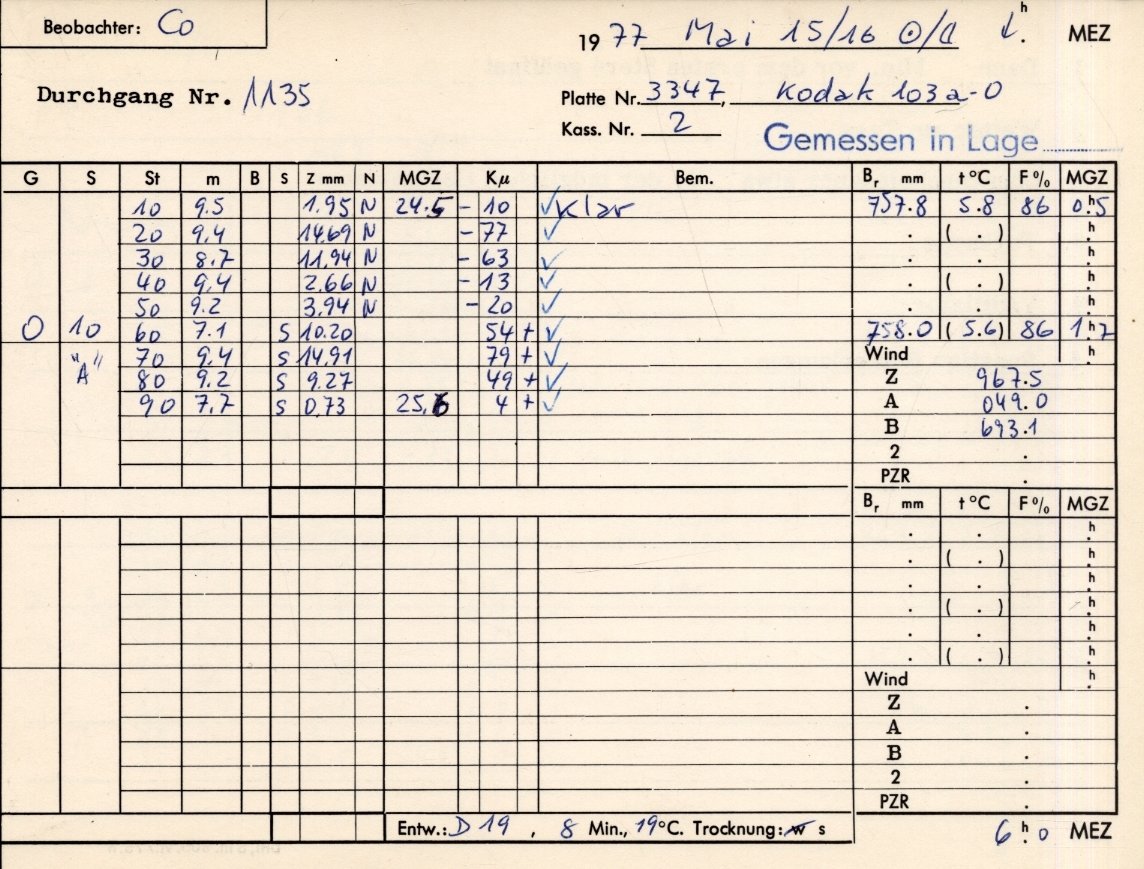 Beobachter: Co
1977 Mai 15/16 ☉/☾ h . MEZ
Durchgang Nr. 1135
Platte Nr. 3347, Kodak 103a-O
Kass. Nr. 2
Gemessen in Lage
G S St m B S Z mm N MGZ Kμ Bem. Br mm t °C F % MGZ
10 9.5 1.95 N 24.5 - 10 ✓ Klar 757.8 5.8 86 0h.5
20 9.4 14.69 N - 77 ✓ . ( . ) h.
30 8.7 11.94 N - 63 ✓ . . h.
40 9.4 2.66 N - 13 ✓ . ( . ) h.
50 9.2 3.94 N - 20 ✓ . . h.
0 10 60 7.1 S 10.20 54 + ✓ 758.0 ( 5.6 ) 86 1h.7
"A" 70 9.4 S 14.91 79 + ✓ Wind h.
80 9.2 S 9.27 49 + ✓ Z 967.5
90 7.7 S 0.73 25,6 4 + ✓ A 049.0
B 693.1
2 .
PZR .
Br mm t °C F % MGZ
. . h.
. ( . ) h.
. . h.
. ( . ) h.
. . h.
. ( . ) h.
Wind h.
Z .
A .
B .
2 .
PZR .
Entw.: D 19 , 8 Min., 19 °C. Trocknung: w s
6h.0 MEZ